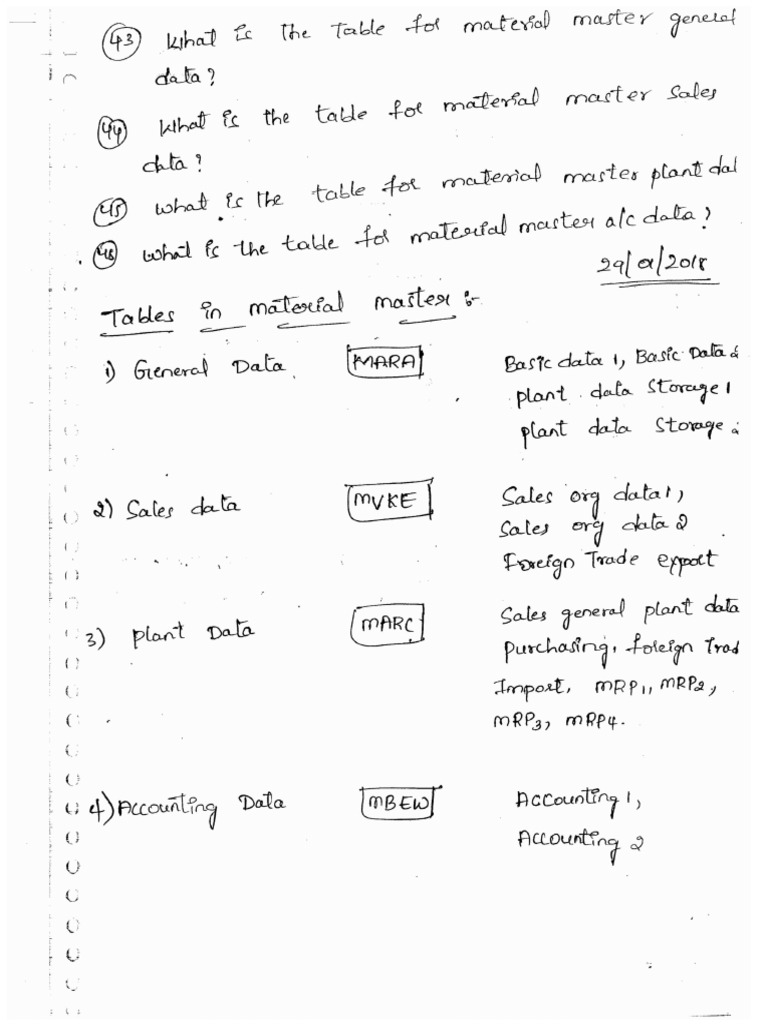 (43) What is the table for material master general
data?
(44) What is the table for material master sales
data?
(45) what is the table for material master plant dat
(46) what is the table for material master a/c data?
29/01/2018
Tables in material master :-
1) General Data MARA Basic data 1, Basic Data 2
plant data storage 1
plant data storage 2
2) Sales data MVKE Sales org data 1,
Sales org data 2
Foreign Trade export
3) plant Data MARC Sales general plant data
purchasing, foreign Trad
Import, MRP1, MRP2,
MRP3, MRP4.
4) Accounting Data MBEW Accounting 1,
Accounting 2